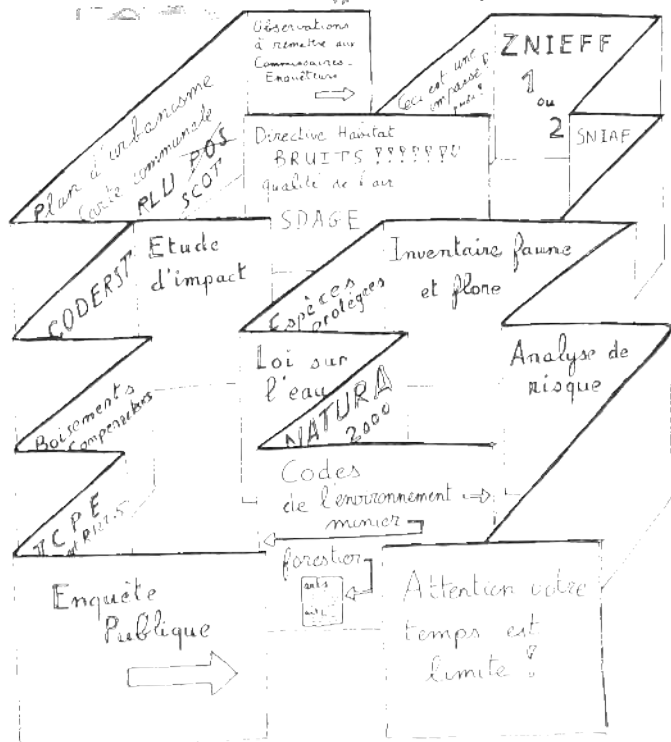 Observations
à remettre aux
Commissaires-
Enquêteurs
Ceci est une
impasse
ZNIEFF
1
ou
2
SNIAF
Plan d'urbanisme
Carte communale
PLU POS
SCOT
Directive Habitat
BRUITS ???????
qualité de l'air
SDAGE
CODERST
Etude
d'impact
Espèces
protégées
Inventaire faune
et flore
Boisements
Compensateurs
Loi sur
l'eau
NATURA
2000
Analyse de
risque
Codes
de l'environnement
minier
forestier
TCPE
Enquête
Publique
Attention votre
temps est
limité !